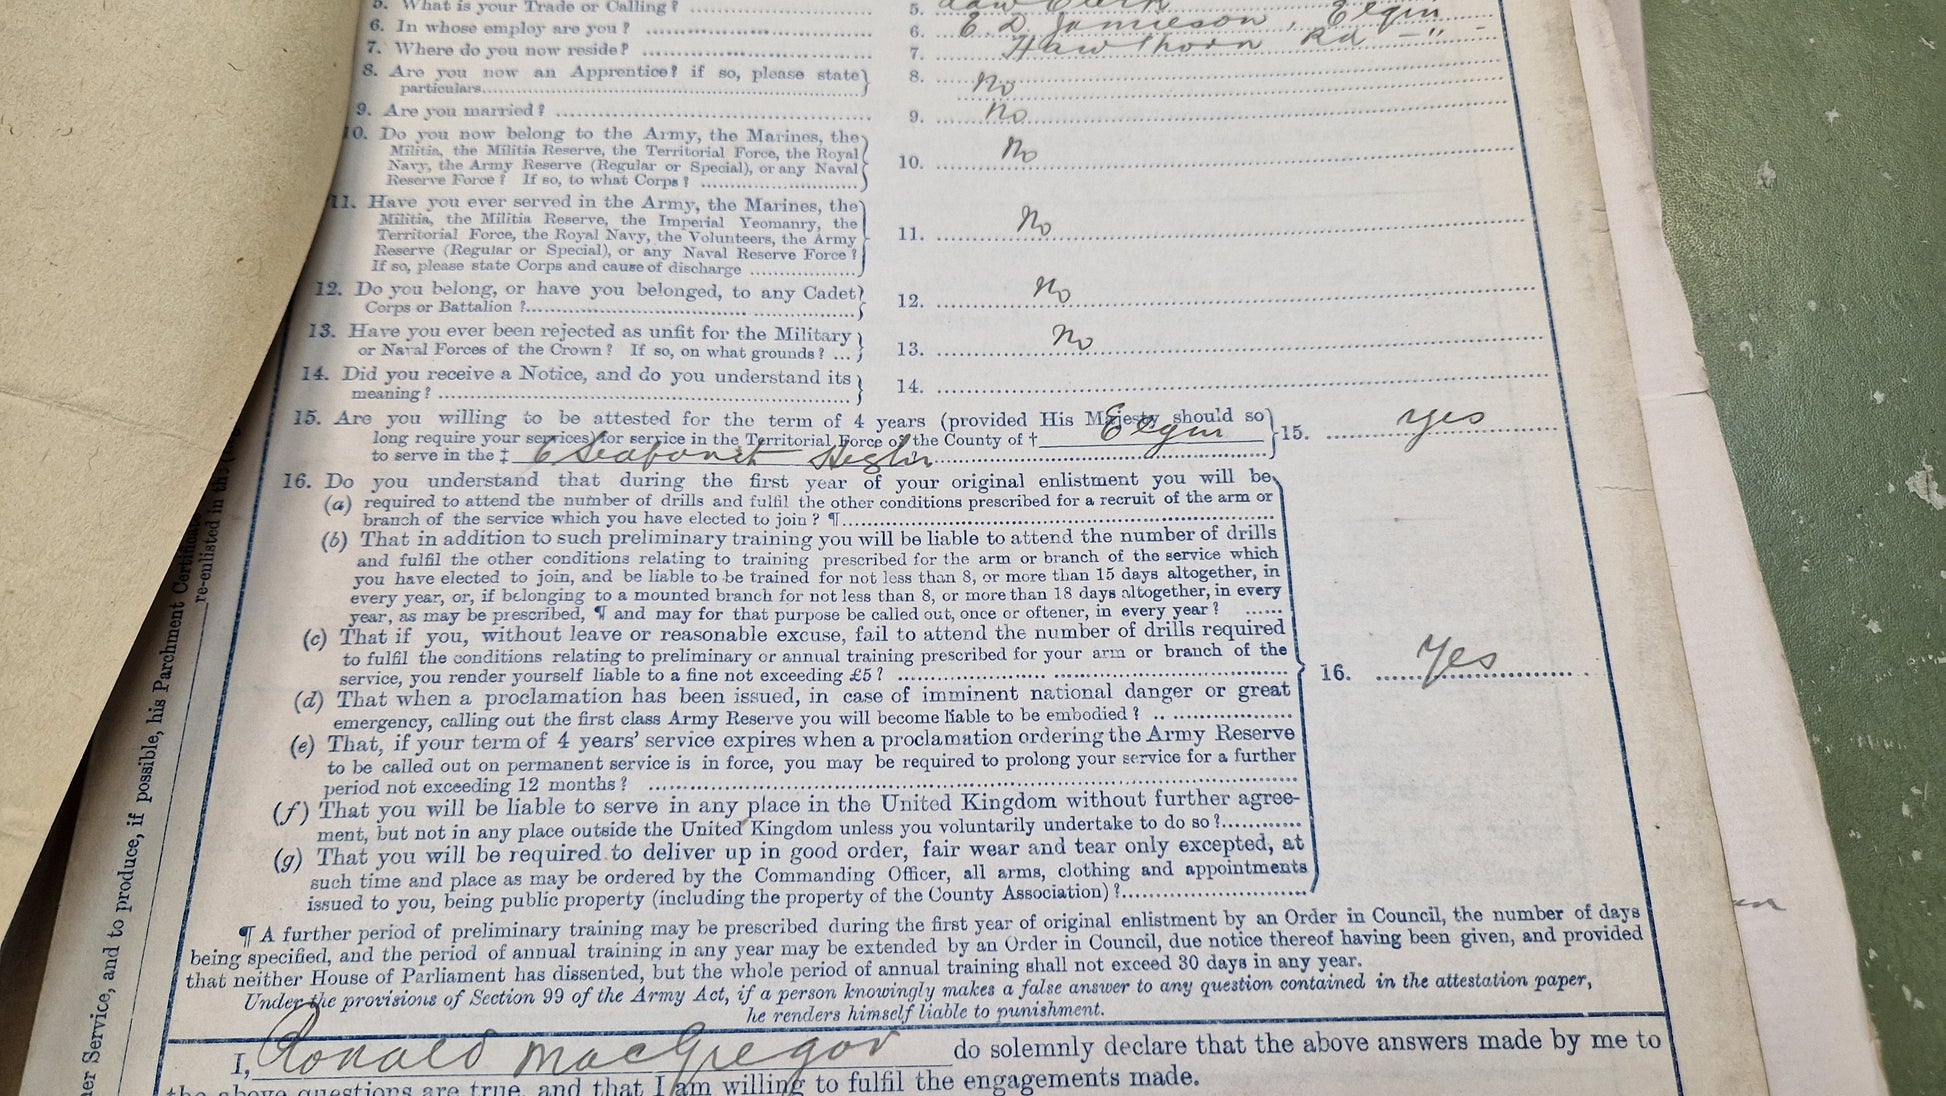 5. What is your Trade or Calling? 5. Law Clerk
6. In whose employ are you? 6. E. D. Jamieson, Elgin
7. Where do you now reside? 7. Hawthorn Rd - " -
8. Are you now an Apprentice? if so, please state particulars 8. No
9. Are you married? 9. No
10. Do you now belong to the Army, the Marines, the
Militia, the Militia Reserve, the Territorial Force, the Royal
Navy, the Army Reserve (Regular or Special), or any Naval
Reserve Force? If so, to what Corps? 10. No
11. Have you ever served in the Army, the Marines, the
Militia, the Militia Reserve, the Imperial Yeomanry, the
Territorial Force, the Royal Navy, the Volunteers, the Army
Reserve (Regular or Special), or any Naval Reserve Force?
If so, please state Corps and cause of discharge 11. No
12. Do you belong, or have you belonged, to any Cadet
Corps or Battalion? 12. No
13. Have you ever been rejected as unfit for the Military
or Naval Forces of the Crown? If so, on what grounds? ... 13. No
14. Did you receive a Notice, and do you understand its
meaning? 14.
15. Are you willing to be attested for the term of 4 years (provided His Majesty should so
long require your services) for service in the Territorial Force of the County of † Elgin
to serve in the ‡ 6 Seaforth 15. Yes
16. Do you understand that during the first year of your original enlistment you will be
(a) required to attend the number of drills and fulfil the other conditions prescribed for a recruit of the arm or
branch of the service which you have elected to join? ¶
(b) That in addition to such preliminary training you will be liable to attend the number of drills
and fulfil the other conditions relating to training prescribed for the arm or branch of the service which
you have elected to join, and be liable to be trained for not less than 8, or more than 15 days altogether, in
every year, or, if belonging to a mounted branch for not less than 8, or more than 18 days altogether, in every
year, as may be prescribed, ¶ and may for that purpose be called out, once or oftener, in every year?
(c) That if you, without leave or reasonable excuse, fail to attend the number of drills required
to fulfil the conditions relating to preliminary or annual training prescribed for your arm or branch of the
service, you render yourself liable to a fine not exceeding £5? 16. Yes
(d) That when a proclamation has been issued, in case of imminent national danger or great
emergency, calling out the first class Army Reserve you will become liable to be embodied?
(e) That, if your term of 4 years' service expires when a proclamation ordering the Army Reserve
to be called out on permanent service is in force, you may be required to prolong your service for a further
period not exceeding 12 months?
(f) That you will be liable to serve in any place in the United Kingdom without further agree-
ment, but not in any place outside the United Kingdom unless you voluntarily undertake to do so?
(g) That you will be required to deliver up in good order, fair wear and tear only excepted, at
such time and place as may be ordered by the Commanding Officer, all arms, clothing and appointments
issued to you, being public property (including the property of the County Association)?
¶ A further period of preliminary training may be prescribed during the first year of original enlistment by an Order in Council, the number of days
being specified, and the period of annual training in any year may be extended by an Order in Council, due notice thereof having been given, and provided
that neither House of Parliament has dissented, but the whole period of annual training shall not exceed 30 days in any year.
Under the provisions of Section 99 of the Army Act, if a person knowingly makes a false answer to any question contained in the attestation paper,
he renders himself liable to punishment.
I, Ronald MacGregor do solemnly declare that the above answers made by me to
the above questions are true, and that I am willing to fulfil the engagements made.
her Service, and to produce, if possible, his Parchment Certificate
re-enlisted in the